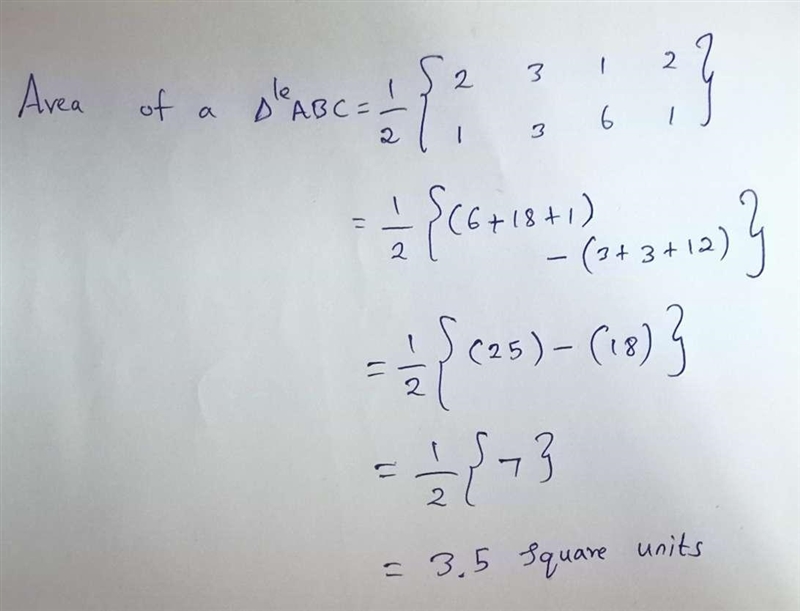 Area of a Δle ABC = 1/2 { 2 3 1 2
1 3 6 1 }
= 1/2 { (6+18+1)
- (3+3+12) }
= 1/2 { (25) - (18) }
= 1/2 { 7 }
= 3.5 square units